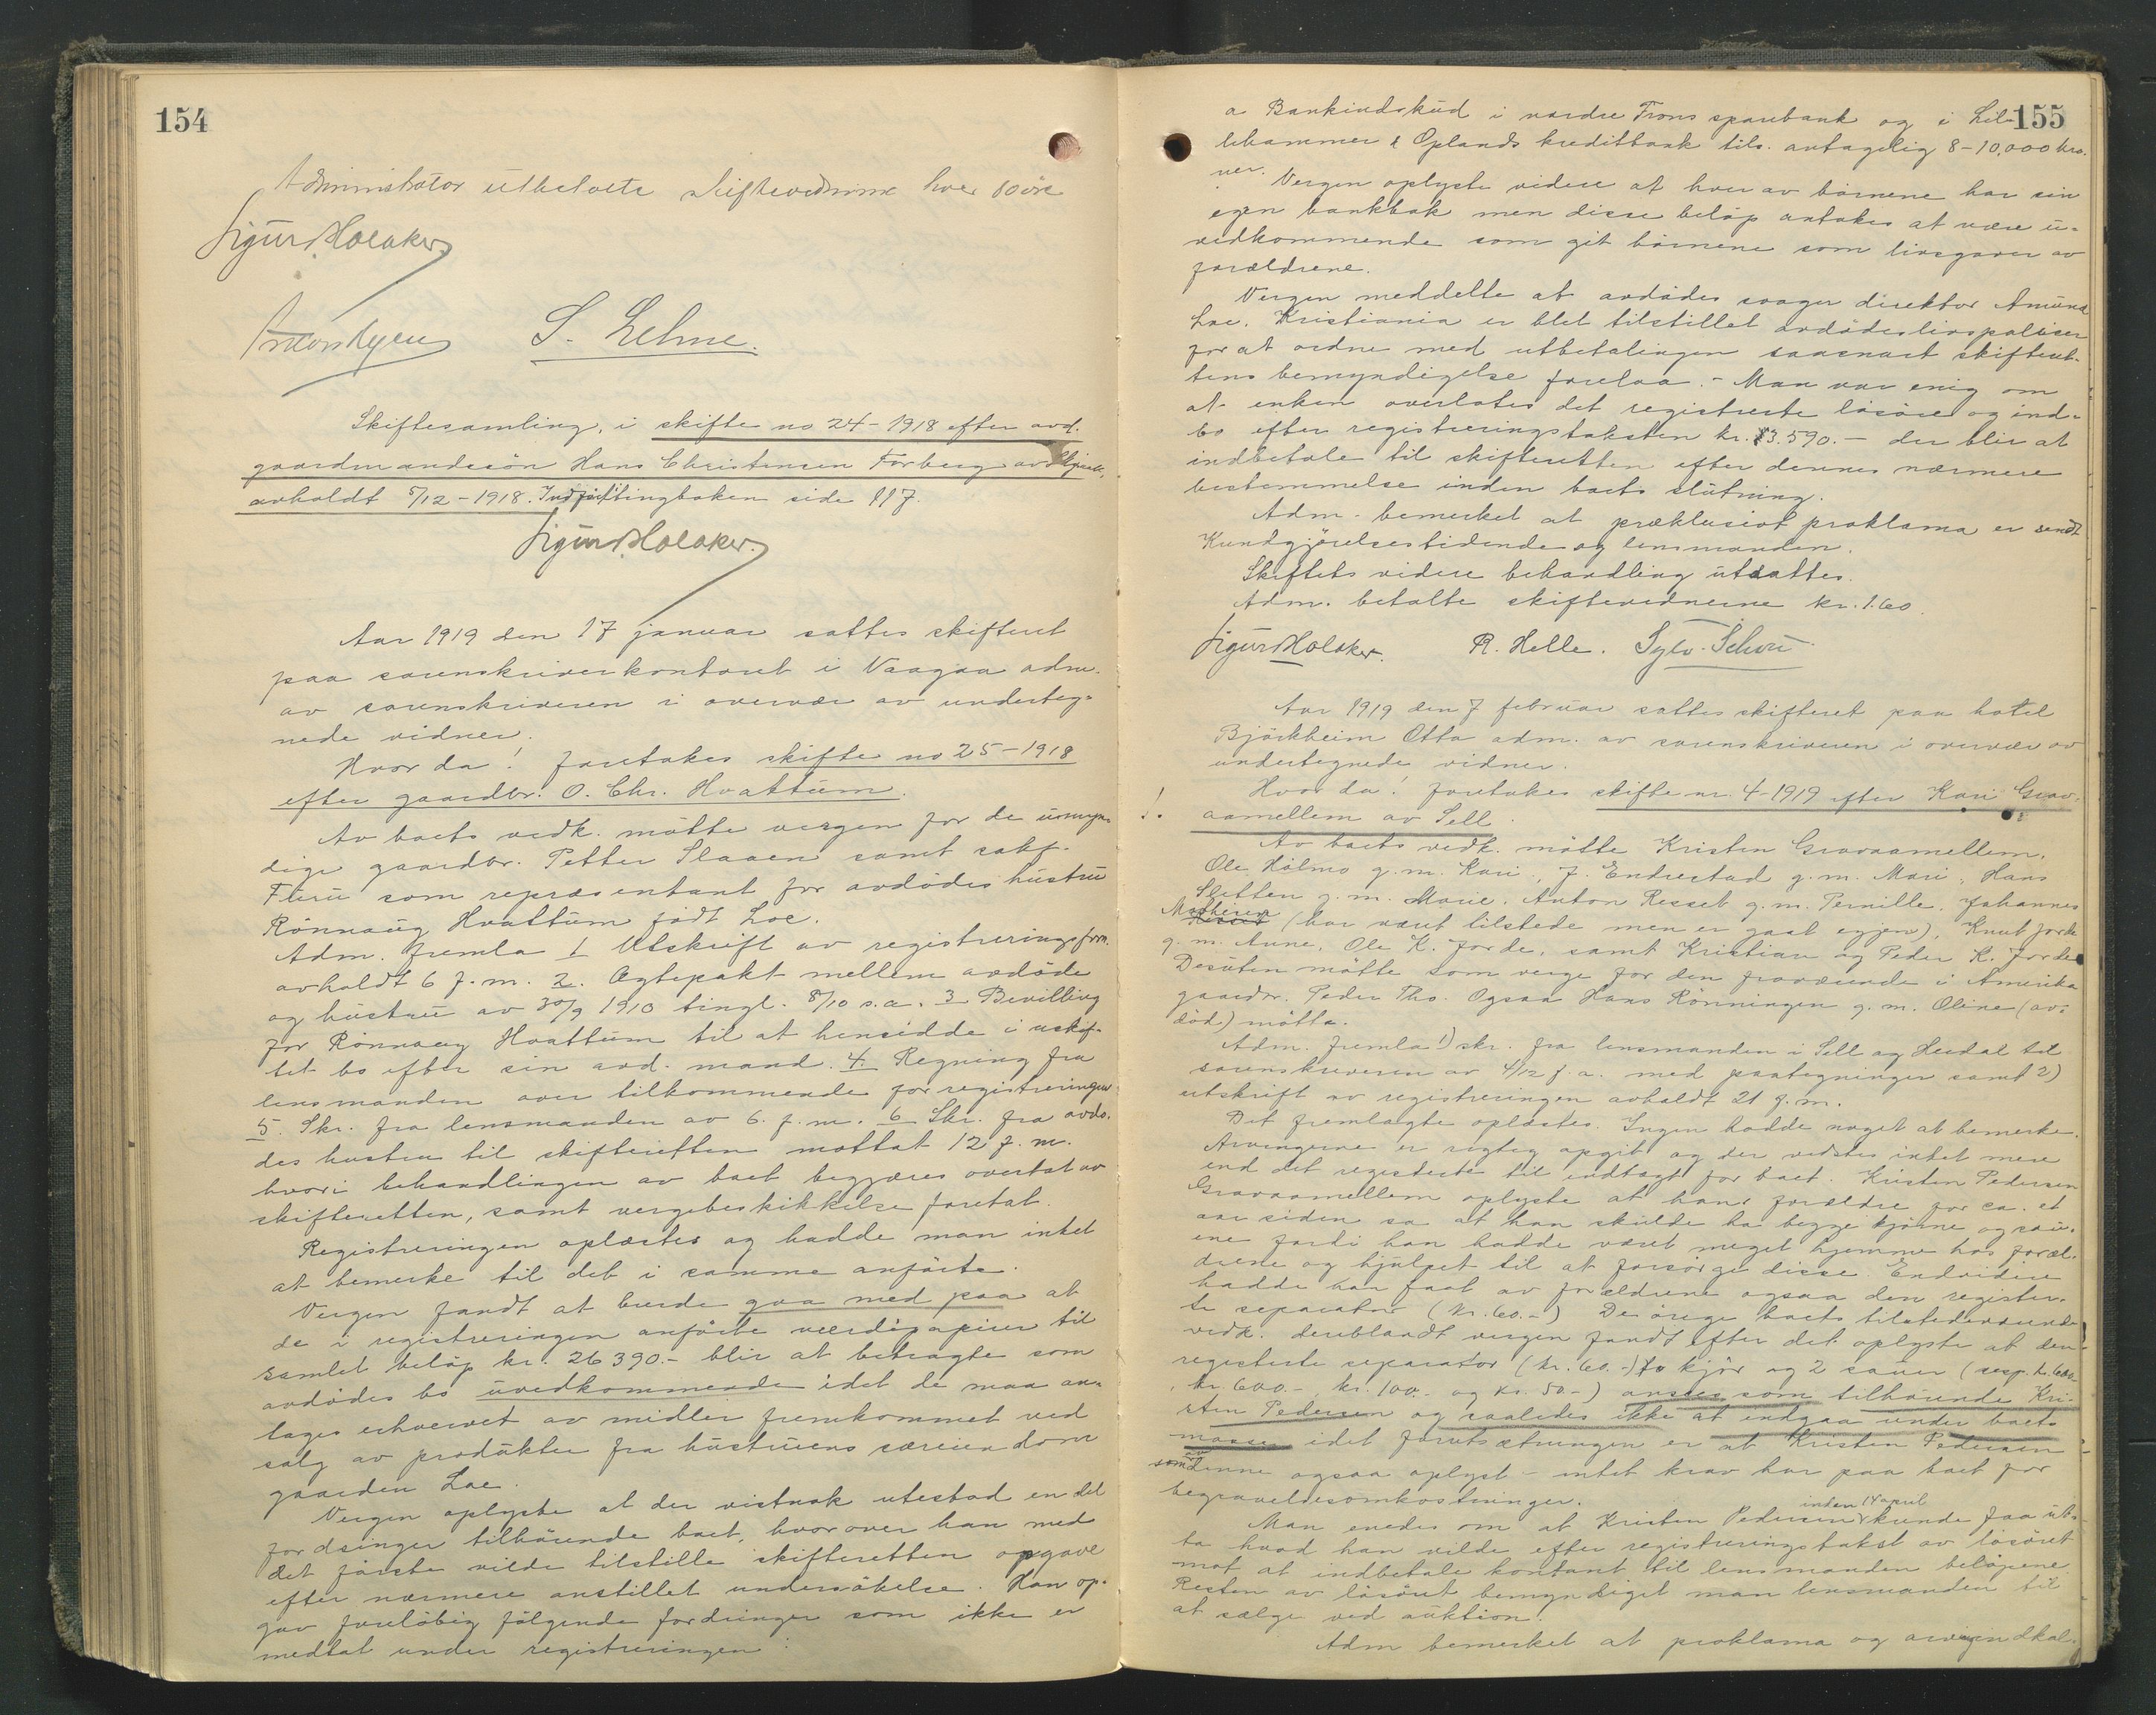 154
Administrator utbetalte skiftevidnene hver 80 øre
Sigurd Holaker
S. Selme.
Skiftesamling, i skifte no 24-1918 efter avd.
gaardmandssön Hans Christensen Forberg av
avholdt 5/12-1918. Indført i tingboken side 117.
Sigurd Holaker.
Aar 1919 den 17 januar sattes skifteret
paa sorenskriverkontoret i Vaagaa adm.
av sorenskriveren i overvær av underteg-
nede vidner.
Hvor da! foretokes skifte no 25-1918
efter gaardbr. O. Chr. Hvattum.
Av boets vedk. mötte vergen for de umyn-
dige gaardbr. Petter Slaaen samt sakf.
Fliru som repræsentant for avdödes hustru
Rönnaug Hvattum födt Loe.
Adm. fremla 1 Utskrift av registreringsforr.
avholdt 6 f.m. 2. Ægtepakt mellem avdöde
og hustru av 30/9 1910 tingl. 8/10 s.a. 3 Bevilling
for Rönnaug Hvattum til at hensidde i uskif-
tet bo efter sin avd. mand. 4. Regning fra
lensmanden over tilkommende for registreringen
5. Skr. fra lensmanden av 6. f.m. 6 Skr. fra avdö-
des hustru til skifteretten mottat 12 f.m.
hvori behandlingen av boet begjæres overtat av
skifteretten, samt vergebeskikkelse foretat.
Registreringen oplæstes og hadde man intet
at bemerke til det i samme anförte.
Vergen fandt at burde gaa med paa at
de i registreringen anförte værdipapirer til
samlet belöp kr. 26 390.- blir at betragte som
avdödes bo uvedkommende idet de maa an-
tages erhvervet av midler fremkommet ved
salg av produkter fra hustruens særeiendom
gaarden Loe.
Vergen oplyste at der vistnok utestod en del
fordringer tilhörende boet, hvorover han med
det förste vilde tilstille skifteretten opgave
efter nærmere anstillet undersökelse. Han op-
gav foreløbig fölgende fordringer som ikke er
medtat under registreringen:
155
a Bankindskud i nordre Frons sparebank og i Lil-
lehammer & Oplands kreditbank tils. antagelig 8-10,000 kro-
ner.
Vergen oplyste videre at hver av börnene har sin
egen bankbok men disse belöp antakes at være u-
vedkommende som git börnene som livsgaver av
forældrene.
Vergen meddelte at avdödes svoger direktör Amund
Loe, Kristiania er blet tilstillet avdödes livspoliser
for at ordne med utbetalingen saasnart skifteret-
tens bemyndigelse forelaa. - Man var enig om
at enken overlates det registrerte lösöre og ind-
bo efter registreringstaksten kr. 3.590.- der blir at
indbetale til skifteretten efter dennes nærmere
bestemmelse inden boets slutning.
Adm. bemerket at præklusivt proklama er sendt
Kundgjörelsestidende og lensmanden.
Skiftets videre behandling utsattes.
Adm. betalte skiftevidnerne kr. 1.60.
Sigurd Holaker. R. Helle. Sylv. Schou
Aar 1919 den 7 februar sattes skifteret paa hotel
Björkheim Otta adm. av sorenskriveren i overvær av
undertegnede vidner.
Hvor da! foretokes skifte nr. 4-1919 efter Kari Grav-
aamellem av Sell.
Av boets vedk. mötte Kristen Gravaamellem,
Ole Holmo g.m. Kari, J. Endrestad g.m. Mari, Hans
Sletten g.m. Marie, Anton Resset g.m. Pernille, Johannes
(har været tilstede men er gaat igjen), Knut Jorde
g.m. Anne, Ole K. Jorde, samt Kristian og Peder K. Jorde
Desuten mötte som verge for den fraværende i Amerika
gaardbr. Peder Tho. Ogsaa Hans Rönningen g.m. Oline (av-
död) mötte.
Adm. fremla 1) skr. fra lensmanden i Sell og Heidal til
sorenskriveren av 4/12 f.a. med paategninger samt 2)
utskrift av registreringen avholdt 21 f.m.
Det fremlagte oplæstes. Ingen hadde noget at bemerke.
Arvingerne er rigtig opgit og der vidstes intet mere
end det registrerte til indtægt for boet. Kristen Pedersen
Gravaamellem oplyste at hans forældre for ca. et
aar siden sa at han skulde ha begge kjörne og sau-
ene fordi han hadde været meget hjemme hos foræl-
drene og hjulpet til at forsörge disse. Endvidere
hadde han faat av forældrene ogsaa den registrer-
te separator (kr. 60.-) De övrige boets tilstedeværende
vedk. deriblandt vergen fandt efter det oplyste at den
registrerte separator (kr. 60.-) to kjör og 2 sauer (resp. kr. 600-
, kr. 600.-, kr. 100.- og kr. 50.-) ansees som tilhörende Kri-
sten Pedersen og saaledes ikke at indgaa under boets
masse idet forutsætningen er at Kristen Pedersen
som av denne ogsaa oplyst - intet krav har paa boet for
begravelsesomkostninger.
inden 14 april
Man enedes om at Kristen Pedersen kunde faa ut-
ta hvad han vilde efter registreringstakst av lösöret
mot at indbetale kontant til lensmanden belöpene.
Resten av lösöret bemyndiget man lensmanden til
at sælge ved auktion.
Adm bemerket at proklama og arvingindkal-